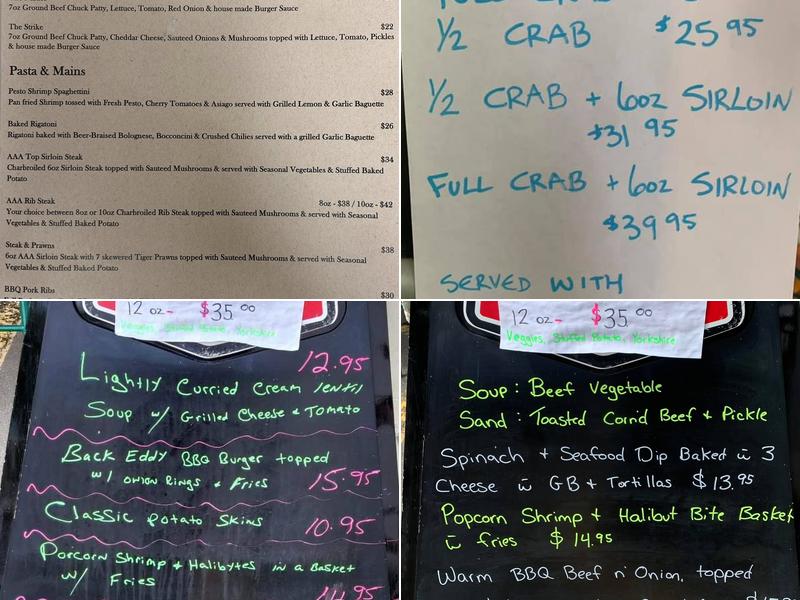 7oz Ground Beef Chuck Patty, Lettuce, Tomato, Red Onion & house made Burger Sauce
The Strike $22
7oz Ground Beef Chuck Patty, Cheddar Cheese, Sauteed Onions & Mushrooms topped with Lettuce, Tomato, Pickles
& house made Burger Sauce
Pasta & Mains
Pesto Shrimp Spaghettini $28
Pan fried Shrimp tossed with Fresh Pesto, Cherry Tomatoes & Asiago served with Grilled Lemon & Garlic Baguette
Baked Rigatoni $26
Rigatoni baked with Beer-Braised Bolognese, Bocconcini & Crushed Chilies served with a grilled Garlic Baguette
AAA Top Sirloin Steak $34
Charbroiled 6oz Sirloin Steak topped with Sauteed Mushrooms & served with Seasonal Vegetables & Stuffed Baked
Potato
AAA Rib Steak 8oz - $38 / 10oz - $42
Your choice between 8oz or 10oz Charbroiled Rib Steak topped with Sauteed Mushrooms & served with Seasonal
Vegetables & Stuffed Baked Potato
Steak & Prawns $38
6oz AAA Sirloin Steak with 7 skewered Tiger Prawns topped with Sauteed Mushrooms & served with Seasonal
Vegetables & Stuffed Baked Potato
BBQ Pork Ribs $30
1/2 CRAB $25 95
1/2 CRAB + 6oz SIRLOIN
$31 95
FULL CRAB + 6oz SIRLOIN
$39 95
SERVED WITH
12 oz- $35 00
Veggies, Stuffed Potato, Yorkshire
12.95
Lightly Curried Cream lentil
Soup w/ Grilled Cheese & Tomato
Back Eddy BBQ Burger topped
w/ onion Rings & Fries 15.95
Classic Potato Skins 10.95
Porcorn Shrimp & Halibytes in a Basket
w/ Fries
14.95
12 oz- $35 00
Veggies, Stuffed Potato, Yorkshire
Soup: Beef Vegetable
Sand: Toasted Corn'd Beef & Pickle
Spinach & Seafood Dip Baked w 3
Cheese w GB & Tortillas $13.95
Popcorn Shrimp & Halibut Bite Basket
w fries $14.95
Warm BBQ Beef n' Onion, topped